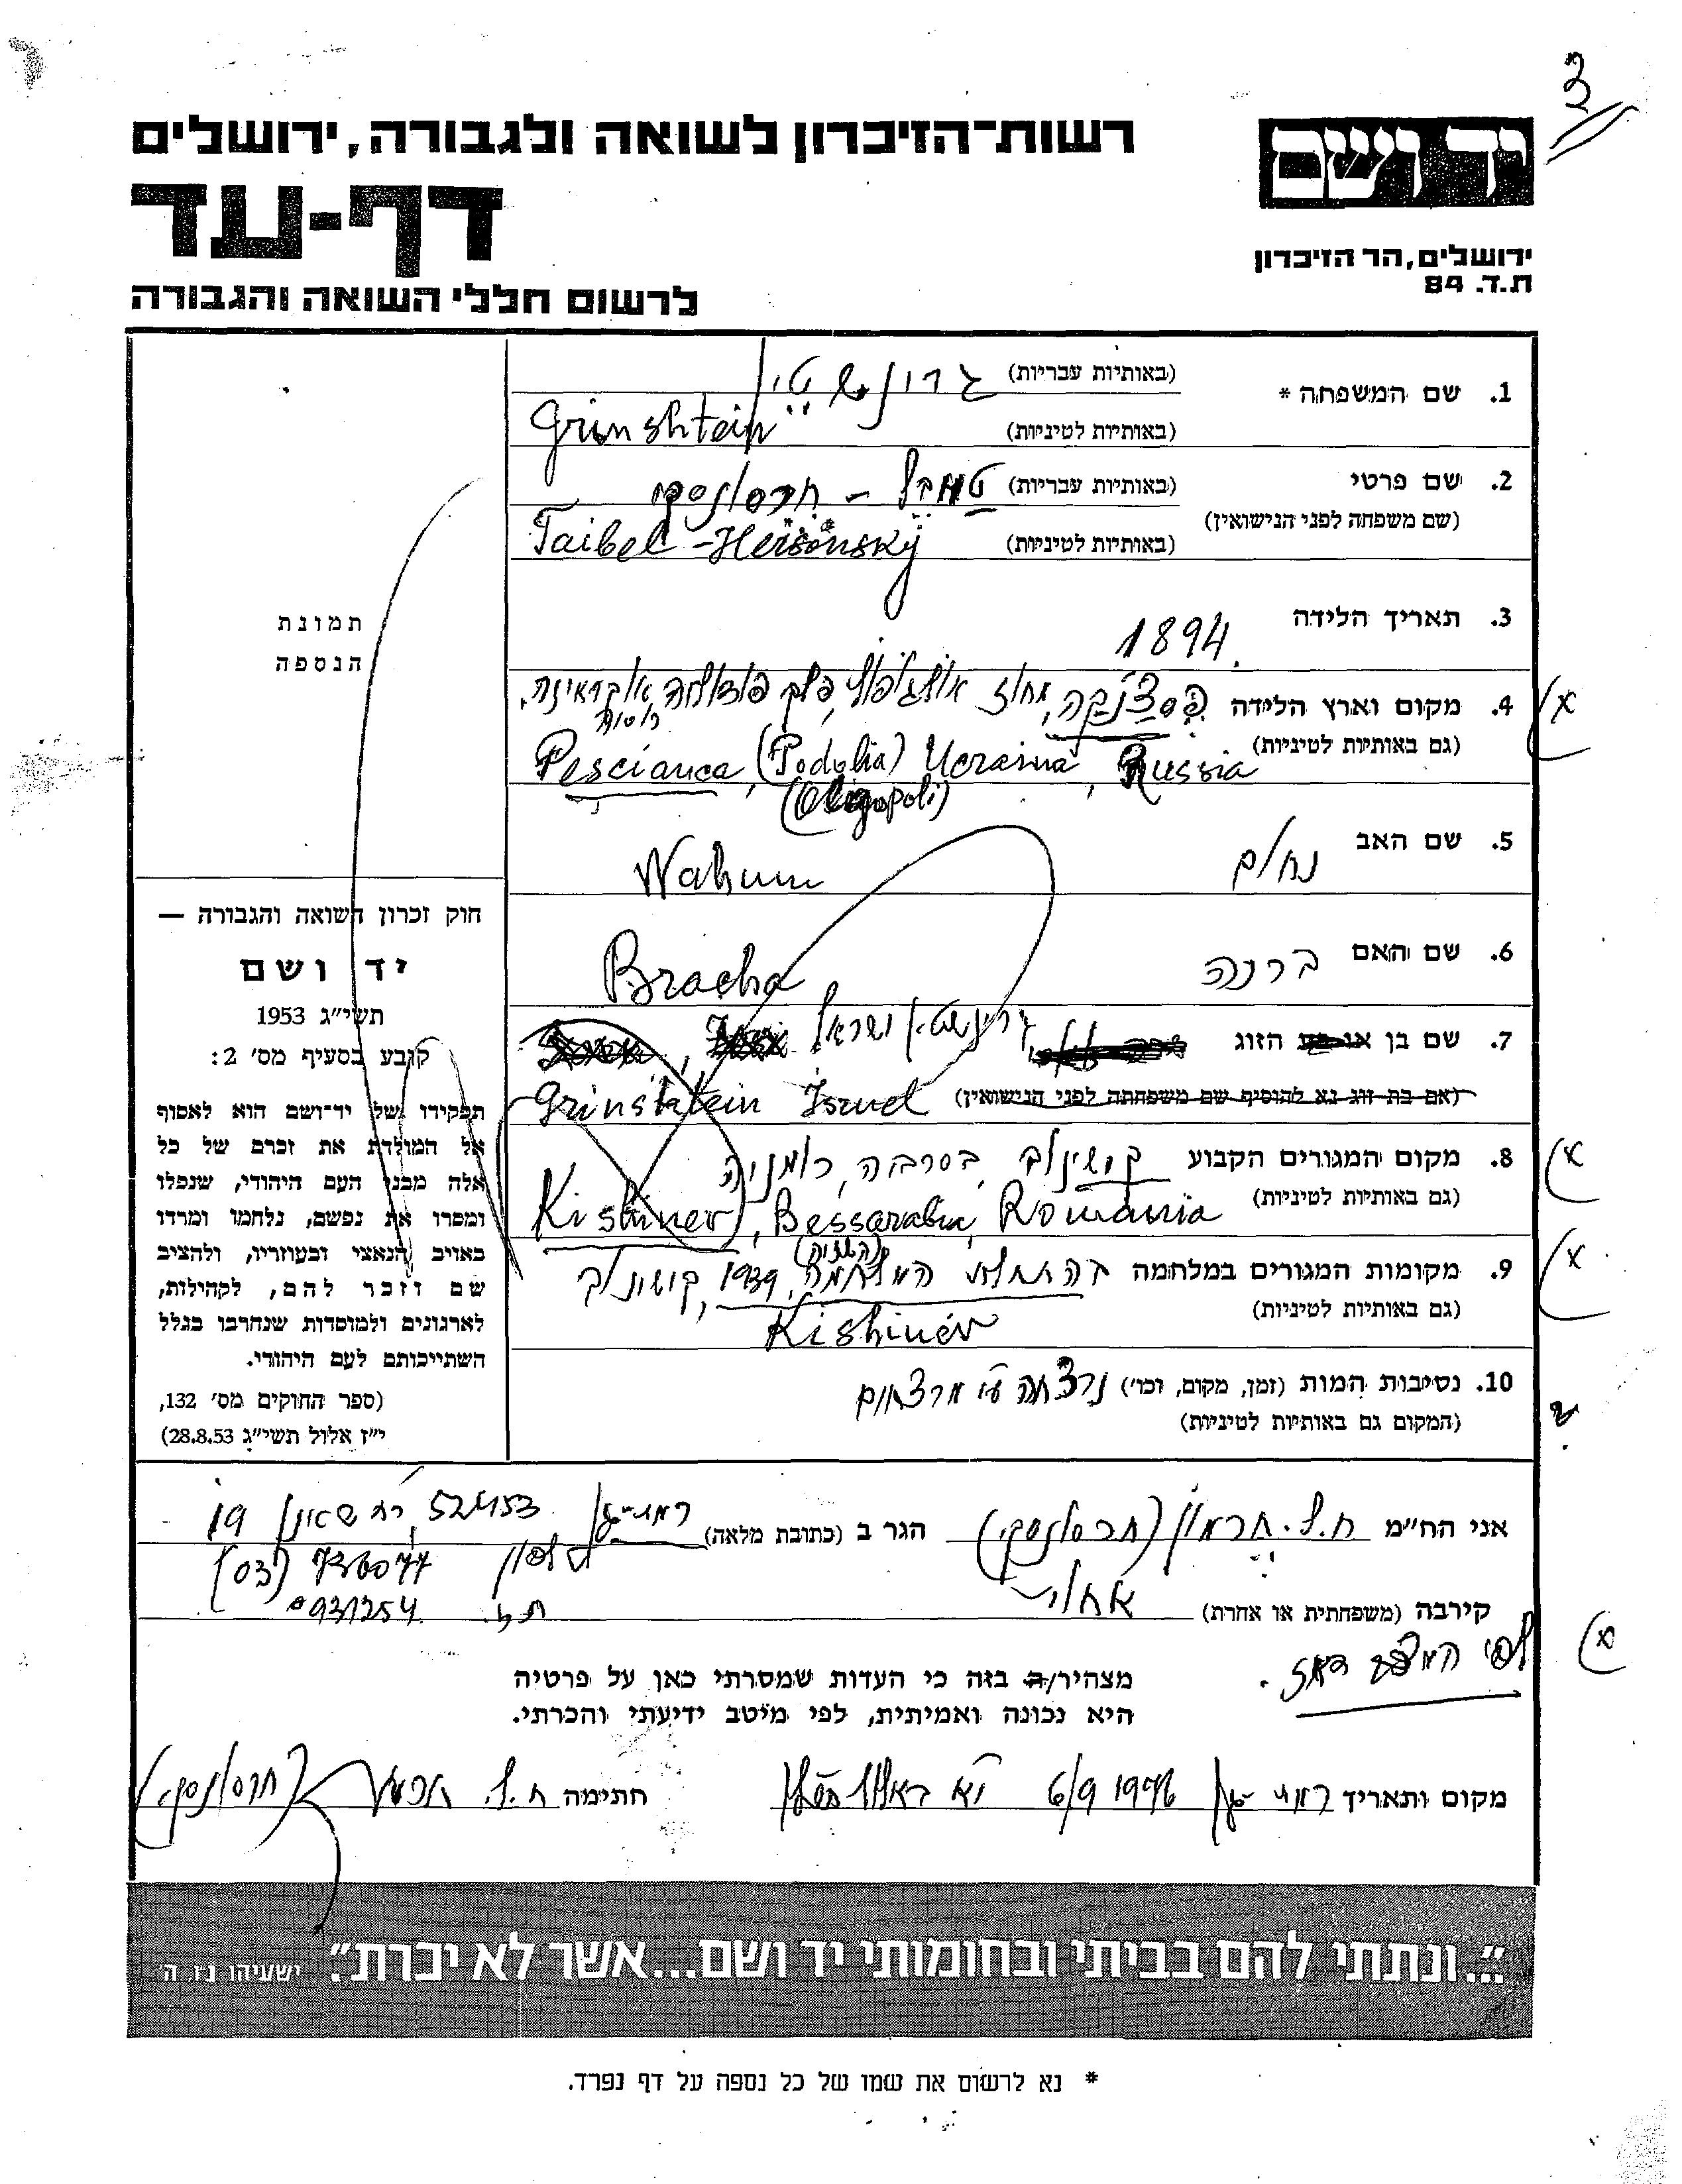 יד ושם
רשות־הזיכרון לשואה ולגבורה, ירושלים
דף-עד
ירושלים, הר הזיכרון
ת.ד. 84
לרשום חללי השואה והגבורה
1. שם המשפחה * (באותיות עבריות) גרינשטיין
(באותיות לטיניות) Grinshtein
2. שם פרטי (באותיות עבריות) טייבל - חרסונסקי
(שם משפחה לפני הנישואין) (באותיות לטיניות) Taibel - Hersonsky
3. תאריך הלידה 1894
4. מקום וארץ הלידה פסצ'נקה, מחוז אולגופול, פלך פודוליה, אוקראינה, רוסיה
(גם באותיות לטיניות) Pescianca, (Podolia) Ucraina, Russia
5. שם האב נחום Nahum
6. שם האם ברכה Bracha
7. שם בן הזוג גרינשטיין ישראל
(אם בת זוג נא להוסיף שם משפחתה לפני הנישואין) Grinshtein Israel
8. מקום המגורים הקבוע קישינוב, בסרביה, רומניה
(גם באותיות לטיניות) Kishinev, Bessarabia, Romania
9. מקומות המגורים במלחמה בהתחלת המלחמה (השניה) 1939, קישינוב
(גם באותיות לטיניות) Kishinev
10. נסיבות המות (זמן, מקום, וכו') נרצחה ע"י מרצחים
(המקום גם באותיות לטיניות)
תמונת
הנספה
חוק זכרון השואה והגבורה —
יד ושם
תשי״ג 1953
קובע בסעיף מס׳ 2:
תפקידו של יד־ושם הוא לאסוף
אל המולדת את זכרם של כל
אלה מבני העם היהודי, שנפלו
ומסרו את נפשם, נלחמו ומרדו
באויב הנאצי ובעוזריו, ולהציב
שם וזכר להם, לקהילות,
לארגונים ולמוסדות שנחרבו בגלל
השתייכותם לעם היהודי.
(ספר החוקים מס׳ 132,
י״ז אלול תשי״ג 28.8.53)
אני הח״מ ח.ל. חרמון (חרסונסקי) הגר ב (כתובת מלאה) רמת-גן 52453, רח' 19
טלפון (03)
קירבה (משפחתית או אחרת)
מצהיר/ה בזה כי העדות שמסרתי כאן על פרטיה
היא נכונה ואמיתית, לפי מיטב ידיעתי והכרתי.
מקום ותאריך רמת גן 6/9 1976 חתימה ח.ל. (חרסונסקי)
״...ונתתי להם בביתי ובחומותי יד ושם...אשר לא יכרת״. ישעיהו נו, ה
* נא לרשום את שמו של כל נספה על דף נפרד.